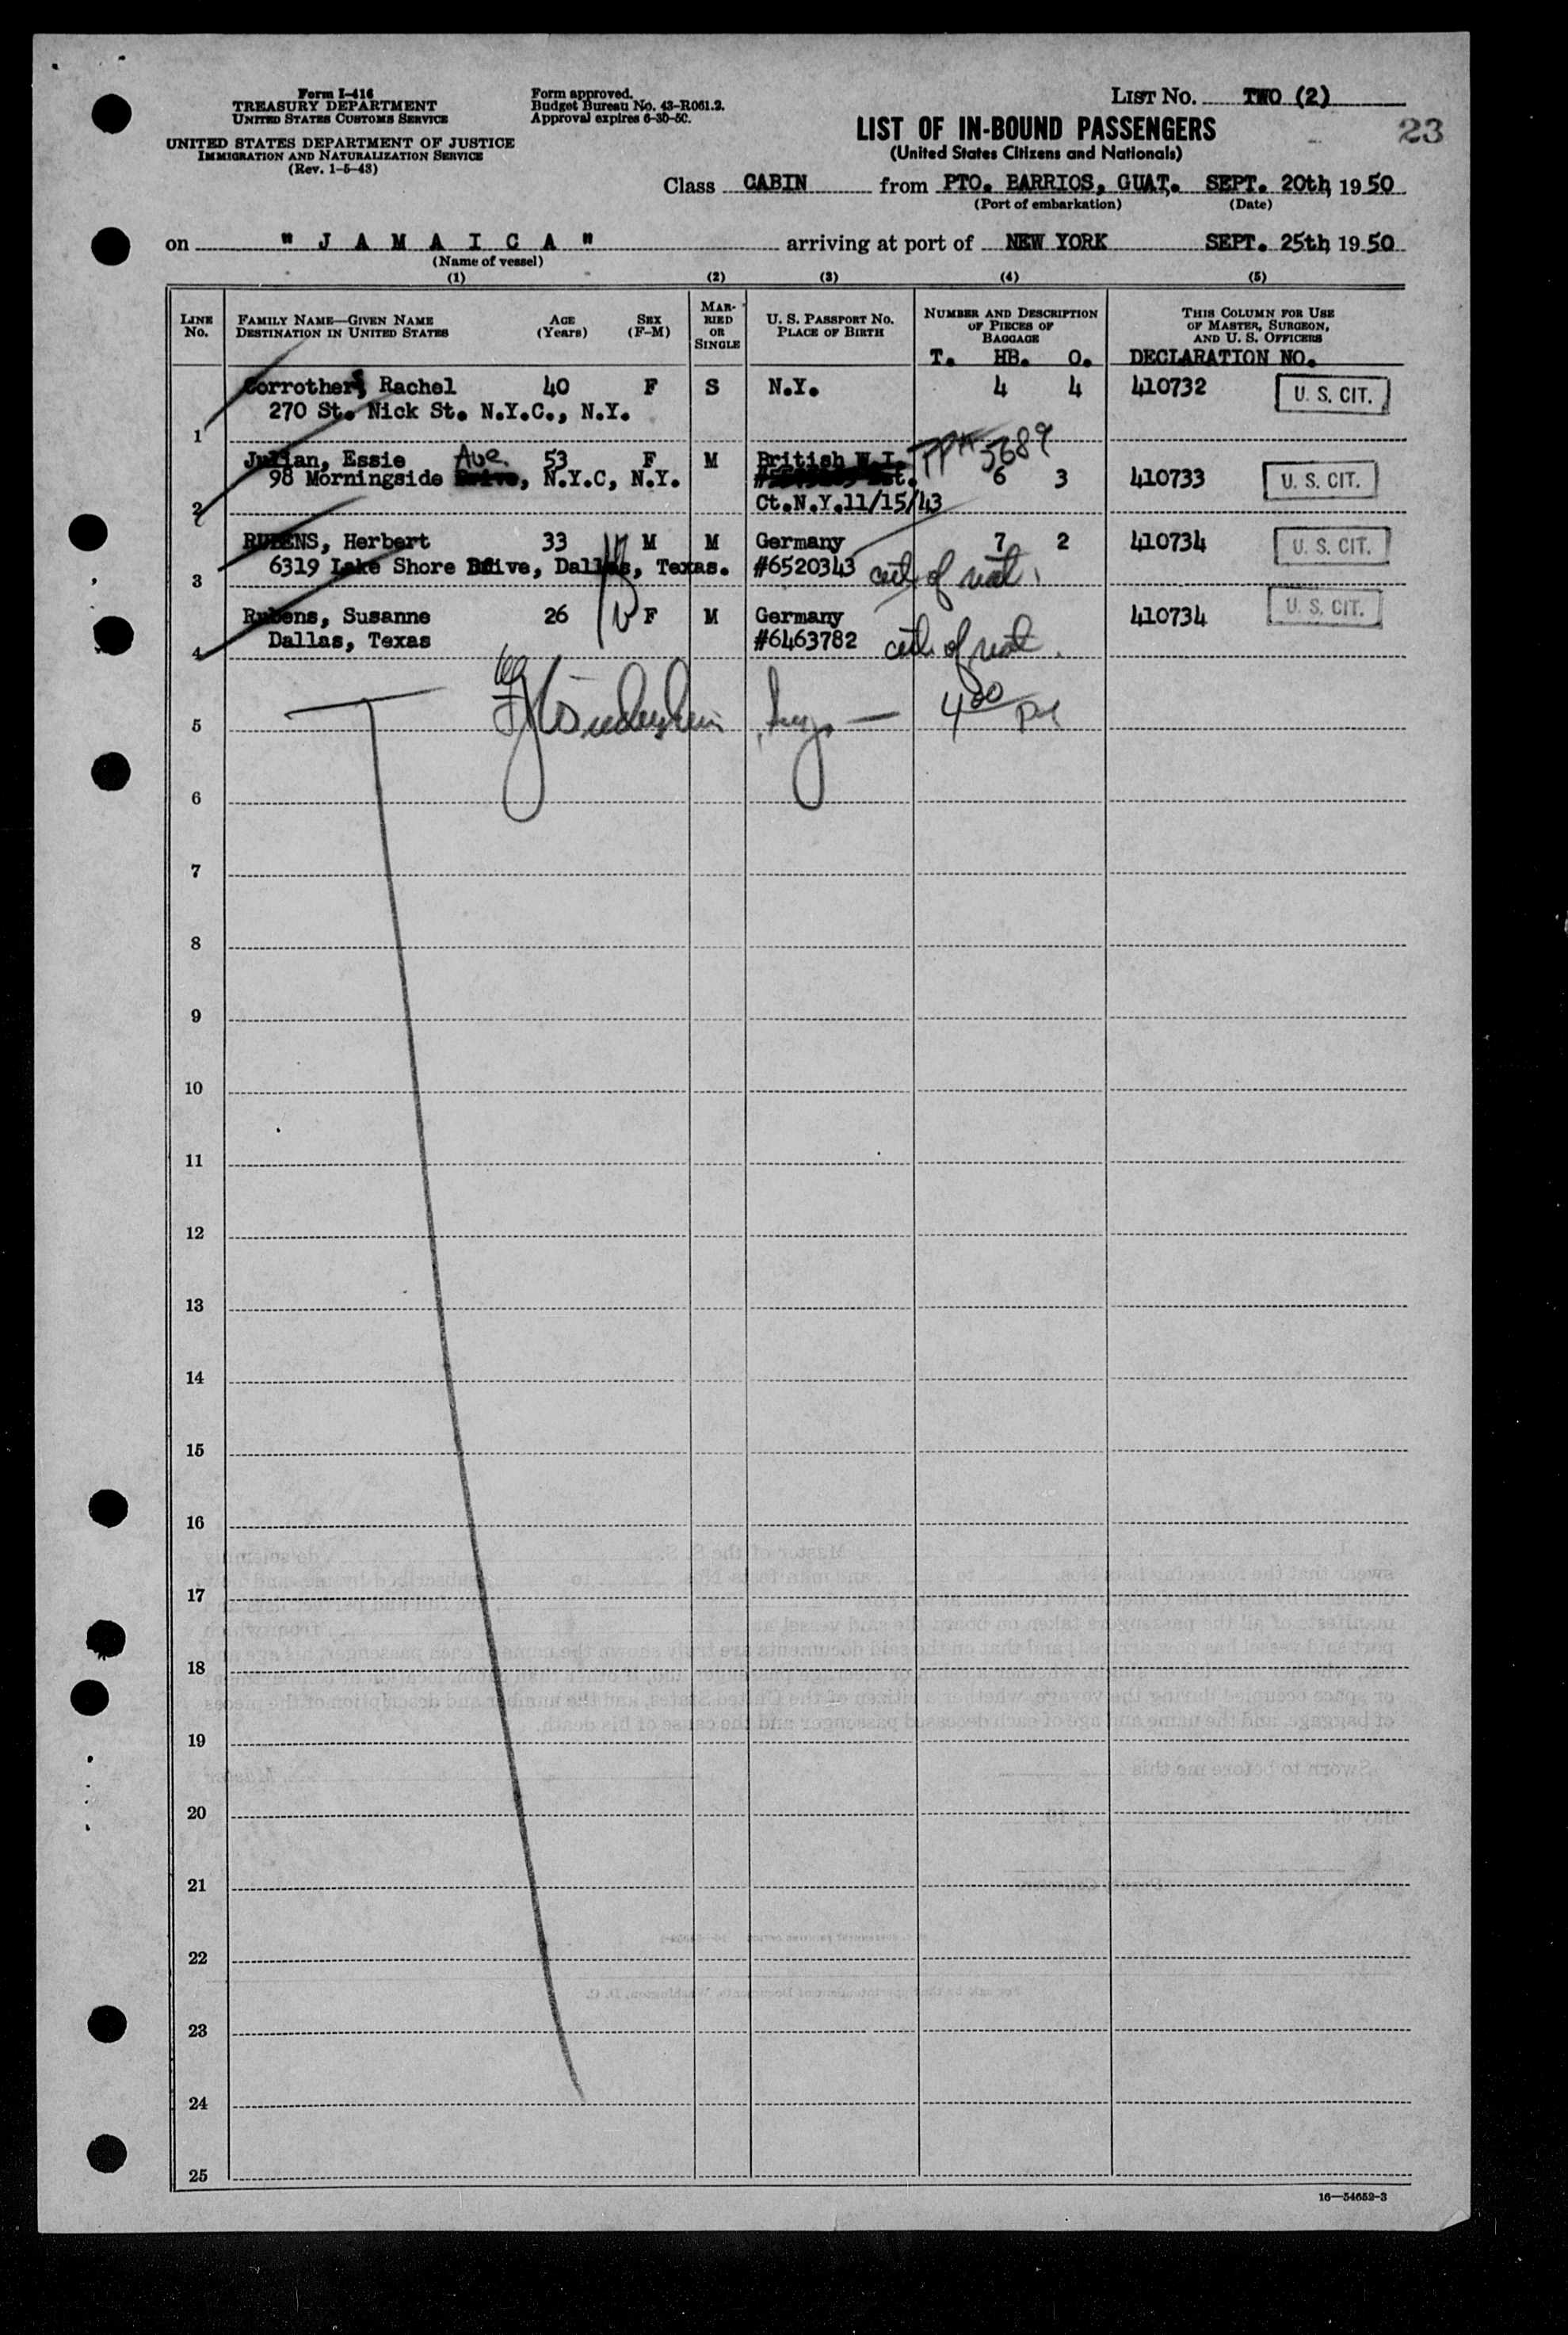 Form I-416
TREASURY DEPARTMENT
UNITED STATES CUSTOMS SERVICE
UNITED STATES DEPARTMENT OF JUSTICE
IMMIGRATION AND NATURALIZATION SERVICE
(Rev. 1-5-43)
Form approved.
Budget Bureau No. 43-R061.2.
Approval expires 6-30-50.
LIST No. TWO (2)
LIST OF IN-BOUND PASSENGERS
(United States Citizens and Nationals)
23
Class CABIN from PTO. BARRIOS, GUAT. SEPT. 20th, 1950
(Port of embarkation) (Date)
on "JAMAICA" arriving at port of NEW YORK SEPT. 25th, 1950
(Name of vessel)
(1) (2) (3) (4) (5)
LINE No.
FAMILY NAME—GIVEN NAME
DESTINATION IN UNITED STATES
AGE (Years)
SEX (F-M)
MARRIED OR SINGLE
U. S. PASSPORT No.
PLACE OF BIRTH
NUMBER AND DESCRIPTION OF PIECES OF BAGGAGE
T. HB. O.
THIS COLUMN FOR USE OF MASTER, SURGEON, AND U. S. OFFICERS
DECLARATION NO.
Corrothers, Rachel 40 F S N.Y. 4 4 410732 U. S. CIT.
270 St. Nick St. N.Y.C., N.Y.
1
Julian, Essie Ave. 53 F M British W.I. 5689
98 Morningside Drive, N.Y.C, N.Y. 6 3 410733 U. S. CIT.
2 Ct.N.Y.11/15/43
RUBENS, Herbert 33 M M Germany 7 2 410734 U. S. CIT.
3 6319 Lake Shore Drive, Dallas, Texas. #6520343 cert. of nat.
Rubens, Susanne 26 F M Germany 410734 U. S. CIT.
4 Dallas, Texas #6463782 cert. of nat.
5 4 00
6
7
8
9
10
11
12
13
14
15
16
17
18
19
20
21
22
23
24
25
16—54652-3